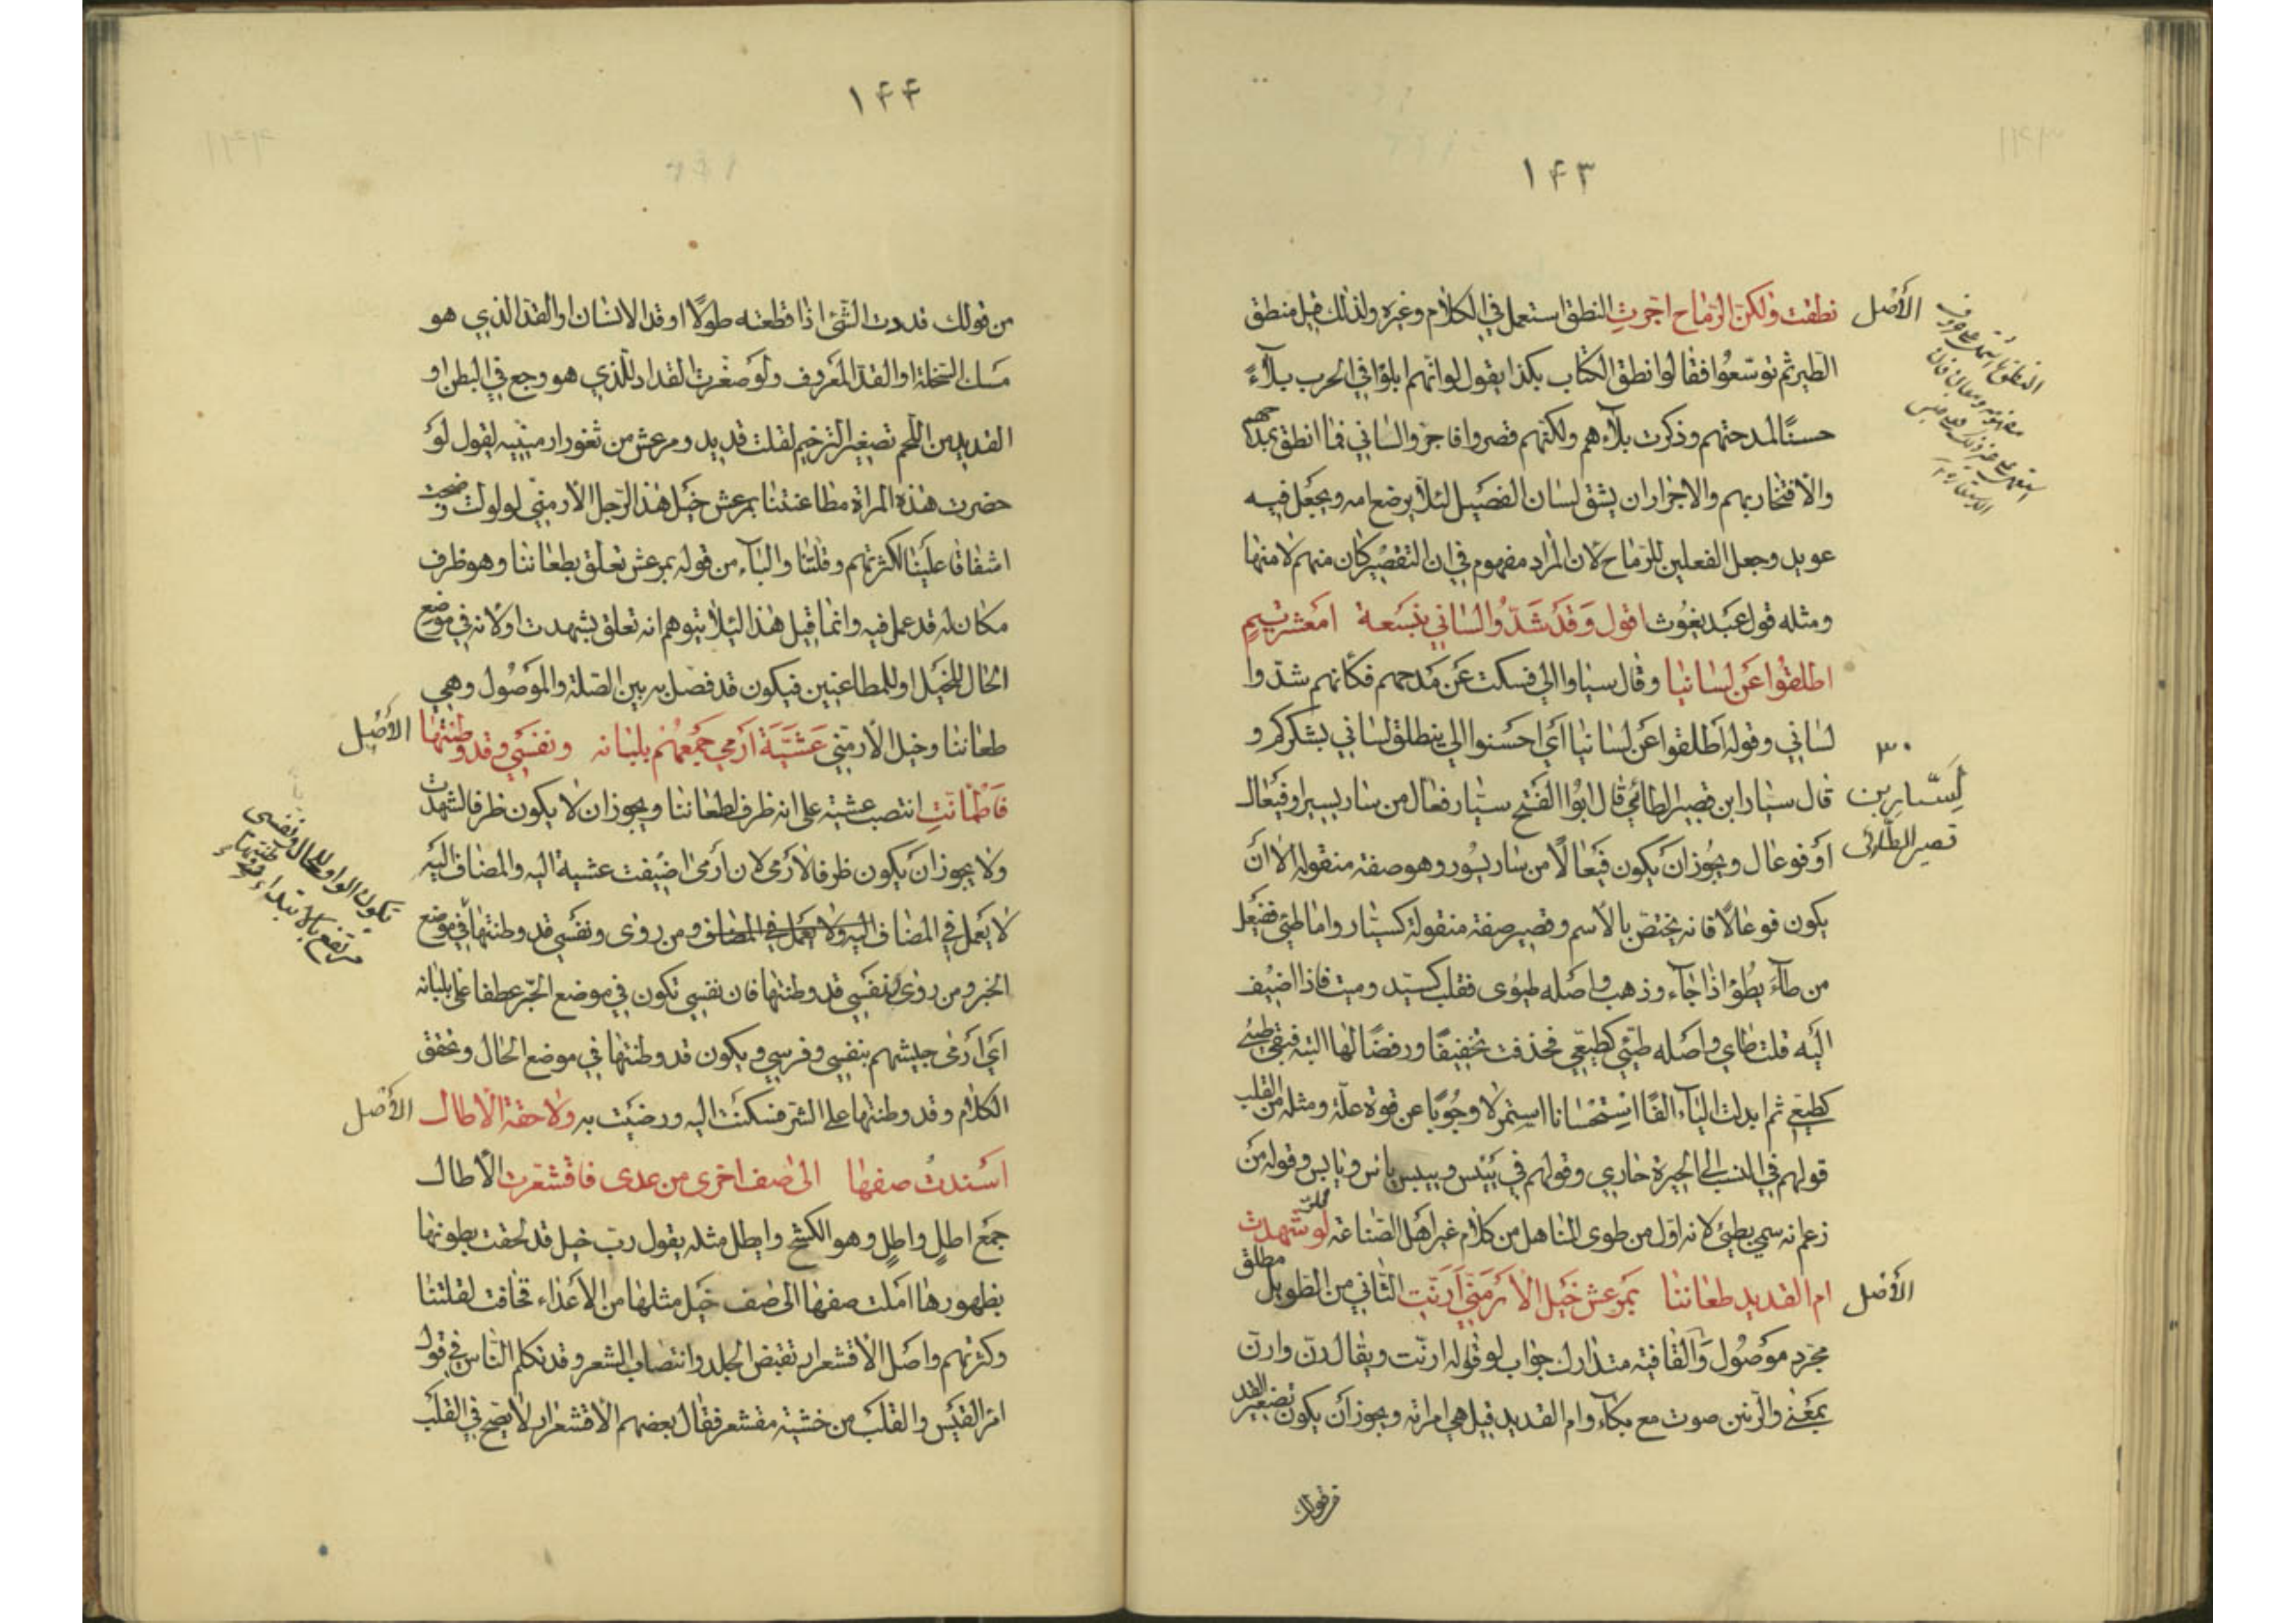 ١٤٣
الأصل
نطقت ولكن الرماح اجرت النطق استعمل في الكلام وغيره ولذلك قيل منطق
الطير ثم توسعوا فقالوا انطق الكتاب بكذا يقول لو انهم ابلوا في الحرب بلاءً
حسنًا لمدحتهم وذكرت بلاءهم ولكنهم قصروا فاجروا لساني فما انطق بمدحهم
والافتخار بهم والاجرار ان يشق لسان الفصيل لئلا يرضع امه ويجعل فيه
عويد وجعل الفعلين للرماح لان المراد مفهوم في ان التقصير كان منهم لا منها
ومثله قول عبد يغوث اقول وقد شدوا لساني بنسعة امعشر تيم
اطلقوا عن لسانيا وقال سباوا الي فسكت عن مدحهم فكأنهم شدوا
لساني وقوله اطلقوا عن لسانيا اي احسنوا الي ينطلق لساني بشكركم و
٣٠
لسيار بن
قصير الطائي
قال سيار ابن قصير الطائي قال ابو الفتح سيار فعال من سار يسير او فيعال
أو فوعال ويجوز ان يكون فيعالًا من سار يسور وهو صفة منقولة الا ان
يكون فوعالًا فانه يختص بالاسم وقصير صفة منقولة كسيار واما طيئ ففيعل
من طاء يطوء اذا جاء وذهب واصله طيوئ فقلب كسيد وميت فاذا اضيف
اليه قلت طاي واصله طيئي كطيعي فحذفت تخفيفًا ورفضًا لها البتة فبقي طيئي
كطيعي ثم ابدلت الياء الفًا استحسانا استمر لا وجوبًا عن قوة علة ومثله من القلب
قولهم في النسب الى الحيرة حاري وقولهم في ييئس وييبس يائس ويابس وقوله من
زعم انه سمي بطيئ لانه اول من طوى المناهل من كلام غير اهل الصناعة لو شهدت
الأصل
ام القديد طعاننا بمرعش خيل الارمني ارنت الثاني من الطويل مطلق
مجرد موصول والقافية متدارك جواب لو قوله ارنت ويقال رن وارن
بمعنى والرنين صوت مع بكاء وام القديد قيل هي امراته ويجوز أن يكون تصغير القد
١٤٤
من قولك قددت الشئ اذا قطعته طولًا او قد الانسان او القد الذي هو
مسك السخلة او القد المعروف ولو صغرت القداد للذي هو وجع في البطن او
القديد من اللحم تصغير الترخيم لقلت قديد ومرعش من ثغور ارمينيه يقول لو
حضرت هذه المراة مطاعنتنا بمرعش خيل هذا الرجل الارمني لولولت وضجت
اشفاقا علينا لكثرتهم وقلتنا والباء من قوله بمرعش تعلق بطعاننا وهو ظرف
مكان له قد عمل فيه وانما قيل هذا لئلا يتوهم انه تعلق بشهدت اولانه في موضع
الحال للخيل او للمطاعنين فيكون قد فصل به بين الصلة والموصول وهي
طعاننا وخيل الارمني عشية أرمي جمعهم بلبانه ونفسي وقد وطنتها
الأصل
فاطمأنت انتصب عشية على انه ظرف لطعاننا ويجوز ان لا يكون ظرفا لشهدت
ولا يجوز ان يكون ظرفا لارمى لان أرمى اضيفت عشية اليه والمضاف اليه
لا يعمل في المضاف اليه ولا يعمل في المضاف ومن روى ونفسي قد وطنتها في موضع
الخبر ومن روى ونفسي قد وطنتها فان نفسي تكون في موضع الجر عطفا على بلبانه
اي أرمى جيشهم بنفسي وفرسي ويكون قد وطنتها في موضع الحال وتحقق
الكلام وقد وطنتها على الشر فسكنت اليه ورضيت به ولاحقة الاطال
الأصل
اسندت صفها الى صف اخرى من عدى فاقشعرت الاطال
جمع اطل واطل وهو الكشح وايطل مثله يقول رب خيل قد لحقت بطونها
بظهورها املت صفها الى صف خيل مثلها من الاعداء فخافت لقلتنا
وكثرتهم واصل الاقشعرار تقبض الجلد وانتصاب الشعر وقد تكلم الناس في قول
امرء القيس والقلب من خشية مقشعر فقال بعضهم الاقشعرار لا يصح في القلب
تكون الواو للحال ونفسي
مرتفع بالابتداء